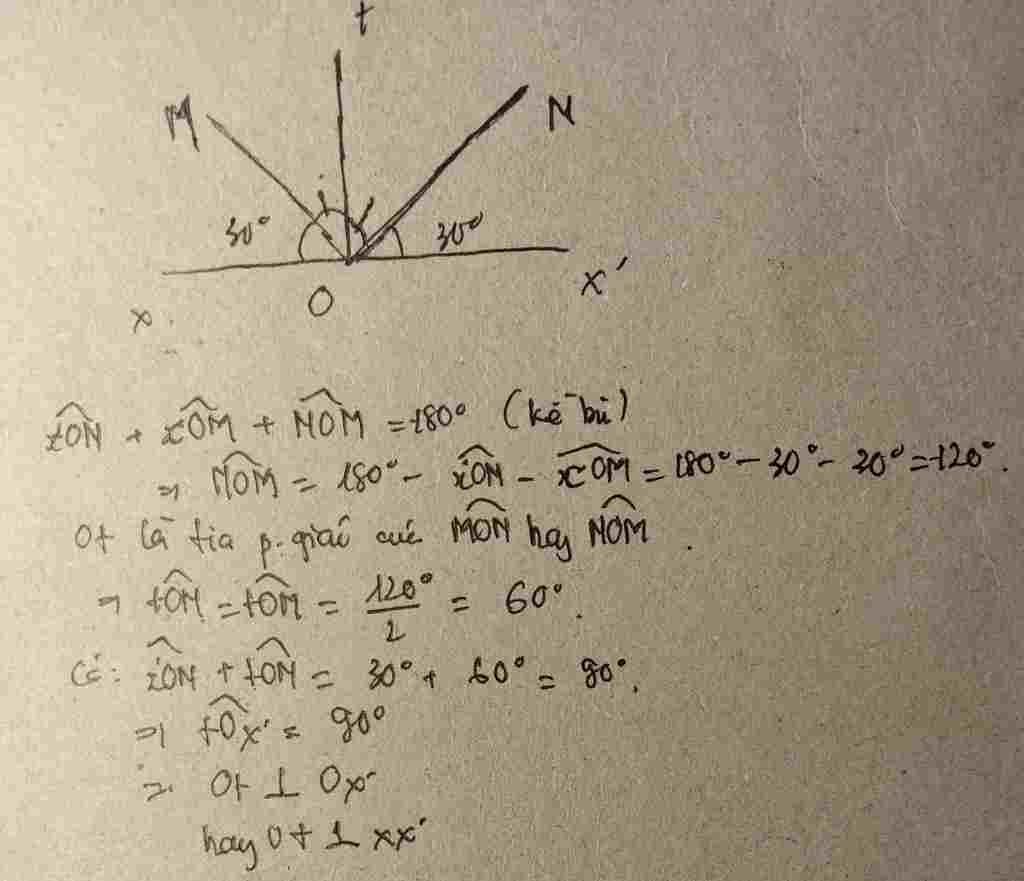 t
M
N
30°
30°
x
O
x'
x'ON + xOM + NOM = 180° (kề bù)
⇒ NOM = 180° - x'ON - xOM = 180° - 30° - 30° = 120°.
Ot là tia p.giác của MON hay NOM.
⇒ tON = tOM = 120°/2 = 60°.
Có: x'ON + tON = 30° + 60° = 90°.
⇒ tOx' = 90°
⇒ Ot ⊥ Ox'
hay Ot ⊥ xx'